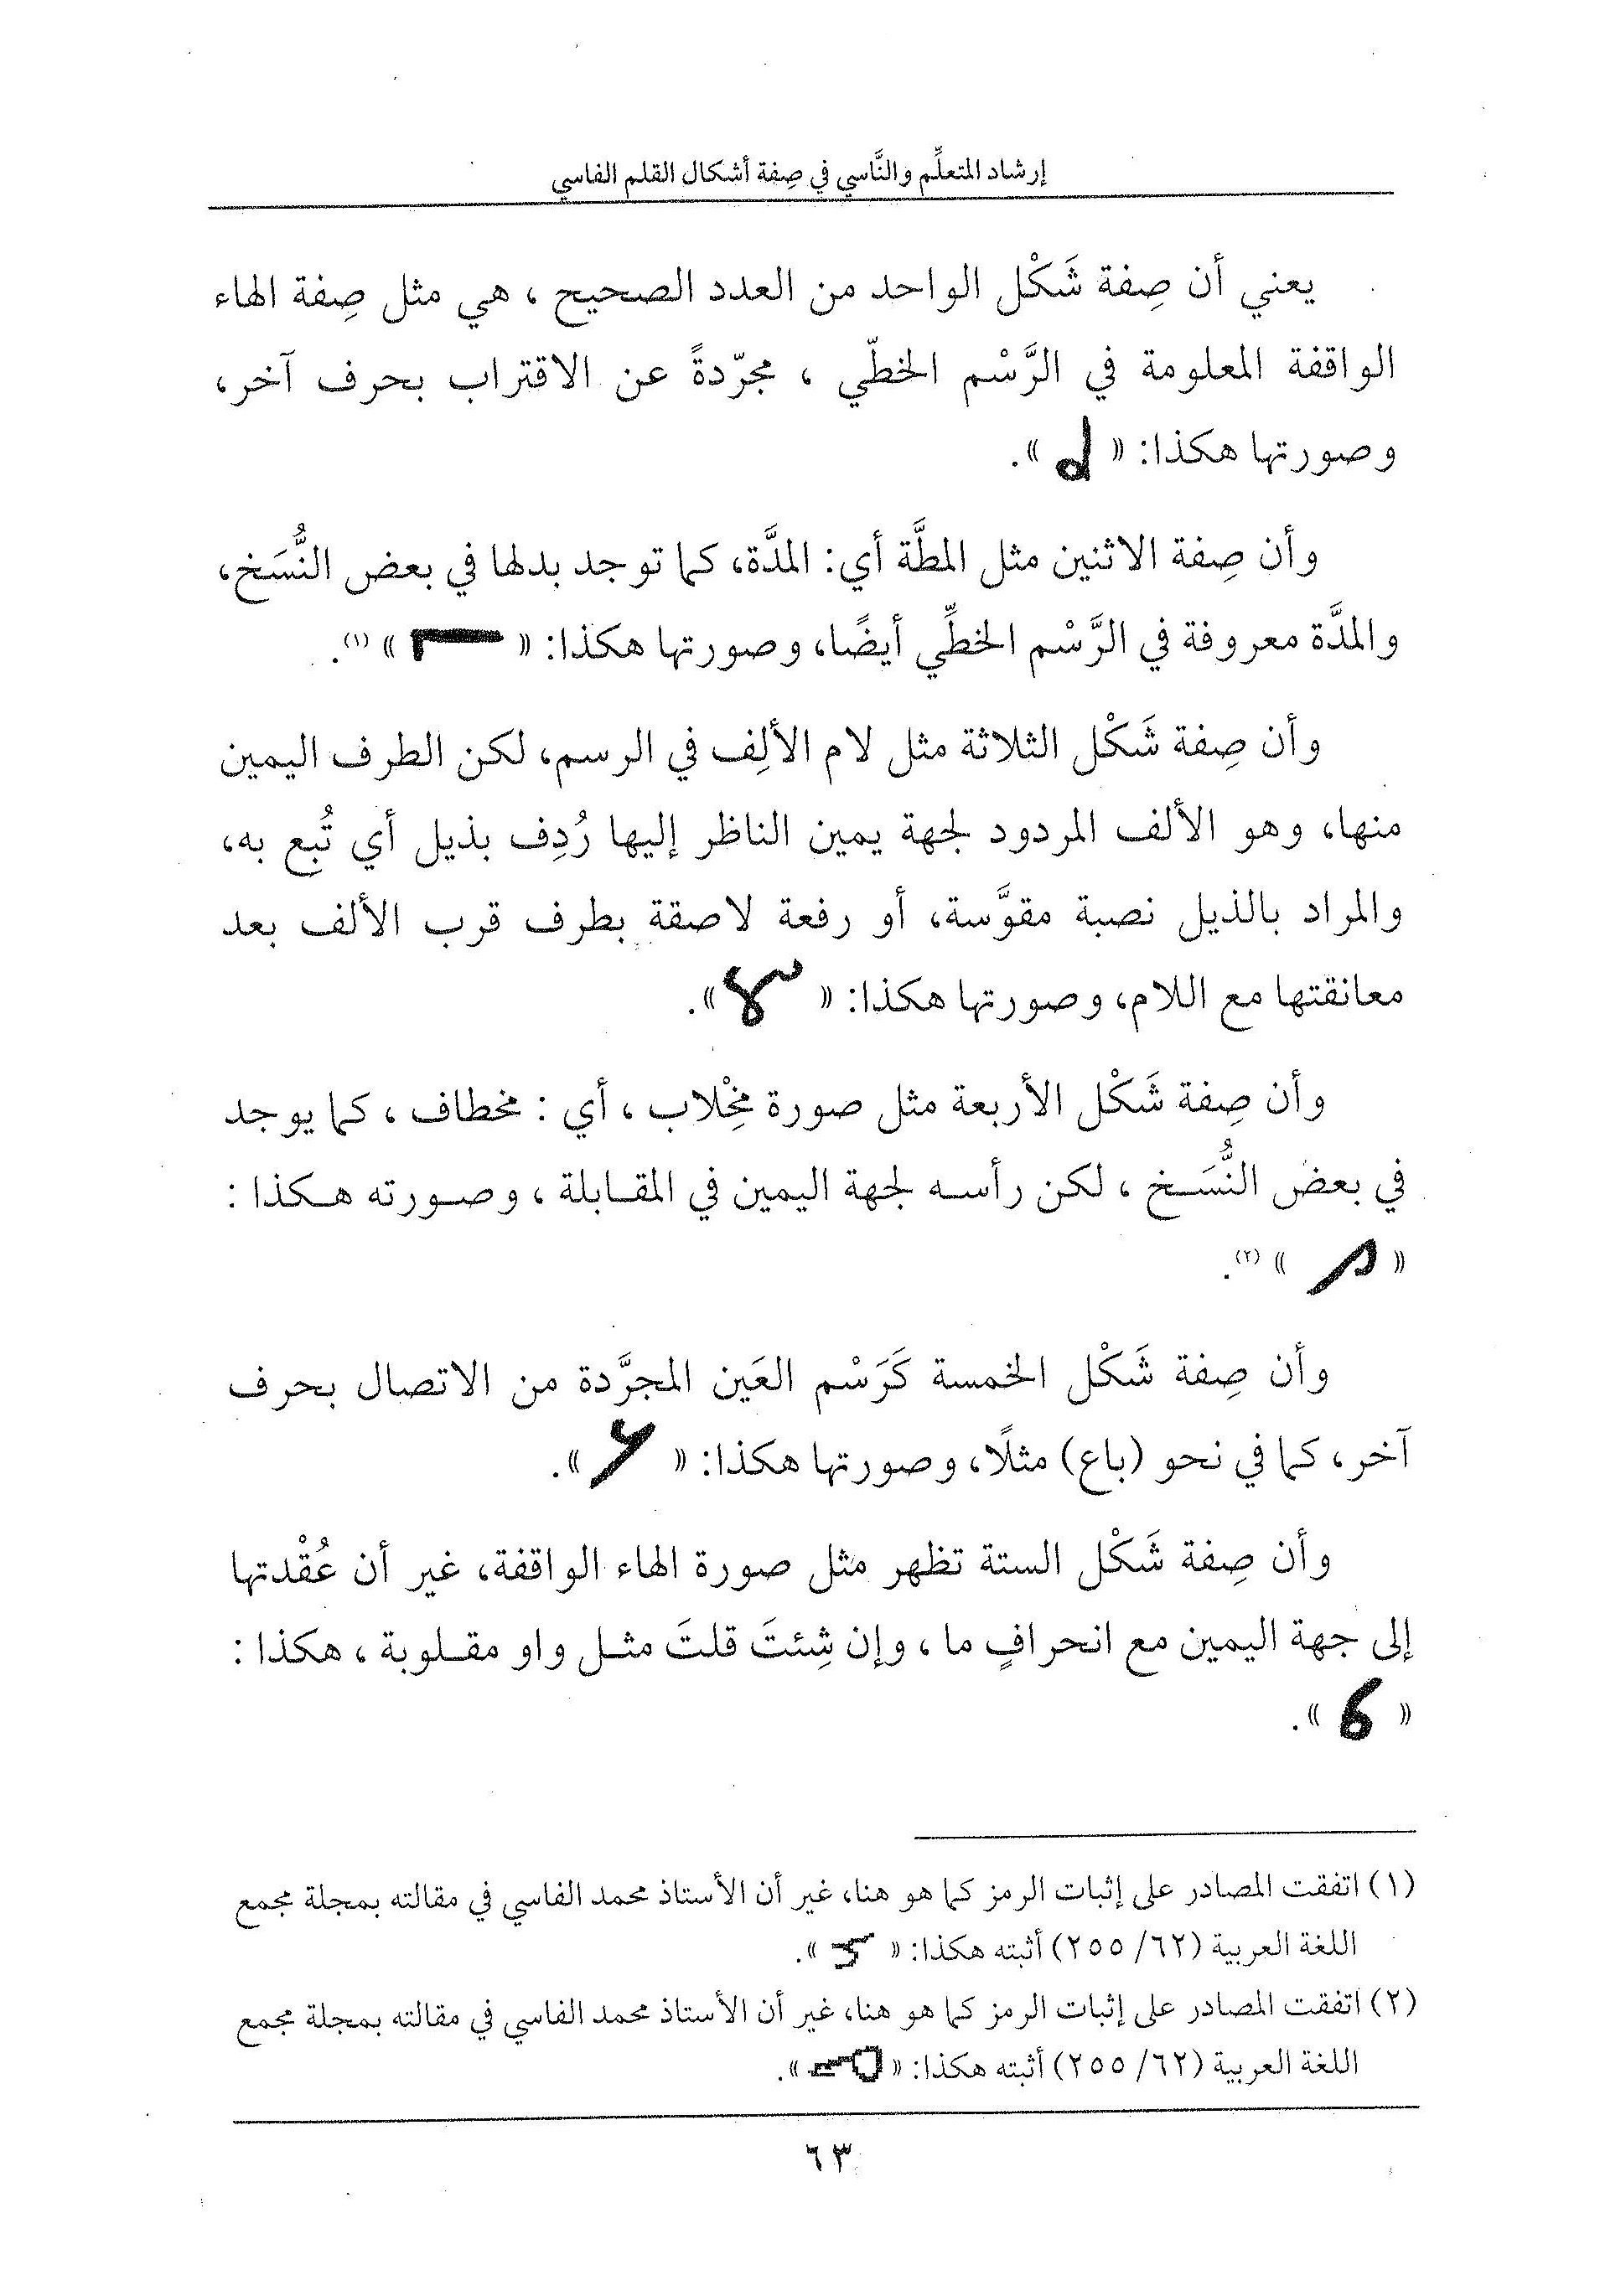 إرشاد المتعلِّم والنَّاسي في صِفة أشكال القلم الفاسي
يعني أن صِفة شَكْل الواحد من العدد الصحيح ، هي مثل صِفة الهاء
الواقفة المعلومة في الرَّسْم الخطّي ، مجرّدةً عن الاقتراب بحرف آخر،
وصورتها هكذا: « ».
وأن صِفة الاثنين مثل المطَّة أي: المدَّة، كما توجد بدلها في بعض النُّسَخ،
والمدَّة معروفة في الرَّسْم الخطِّي أيضًا، وصورتها هكذا: « » (١).
وأن صِفة شَكْل الثلاثة مثل لام الألِف في الرسم، لكن الطرف اليمين
منها، وهو الألف المردود لجهة يمين الناظر إليها رُدِف بذيل أي تُبع به،
والمراد بالذيل نصبة مقوَّسة، أو رفعة لاصقة بطرف قرب الألف بعد
معانقتها مع اللام، وصورتها هكذا: « ».
وأن صِفة شَكْل الأربعة مثل صورة مِخْلاب ، أي : مخطاف ، كما يوجد
في بعض النُّسَخ ، لكن رأسه لجهة اليمين في المقابلة ، وصورته هكذا :
« » (٢).
وأن صِفة شَكْل الخمسة كَرَسْم العَين المجرَّدة من الاتصال بحرف
آخر، كما في نحو (باع) مثلًا، وصورتها هكذا: « ».
وأن صِفة شَكْل الستة تظهر مثل صورة الهاء الواقفة، غير أن عُقْدتها
إلى جهة اليمين مع انحرافٍ ما ، وإن شِئتَ قلتَ مثل واو مقلوبة ، هكذا :
« 6 ».
(١) اتفقت المصادر على إثبات الرمز كما هو هنا، غير أن الأستاذ محمد الفاسي في مقالته بمجلة مجمع
اللغة العربية (٦٢/ ٢٥٥) أثبته هكذا: « ».
(٢) اتفقت المصادر على إثبات الرمز كما هو هنا، غير أن الأستاذ محمد الفاسي في مقالته بمجلة مجمع
اللغة العربية (٦٢/ ٢٥٥) أثبته هكذا: « ».
٦٣